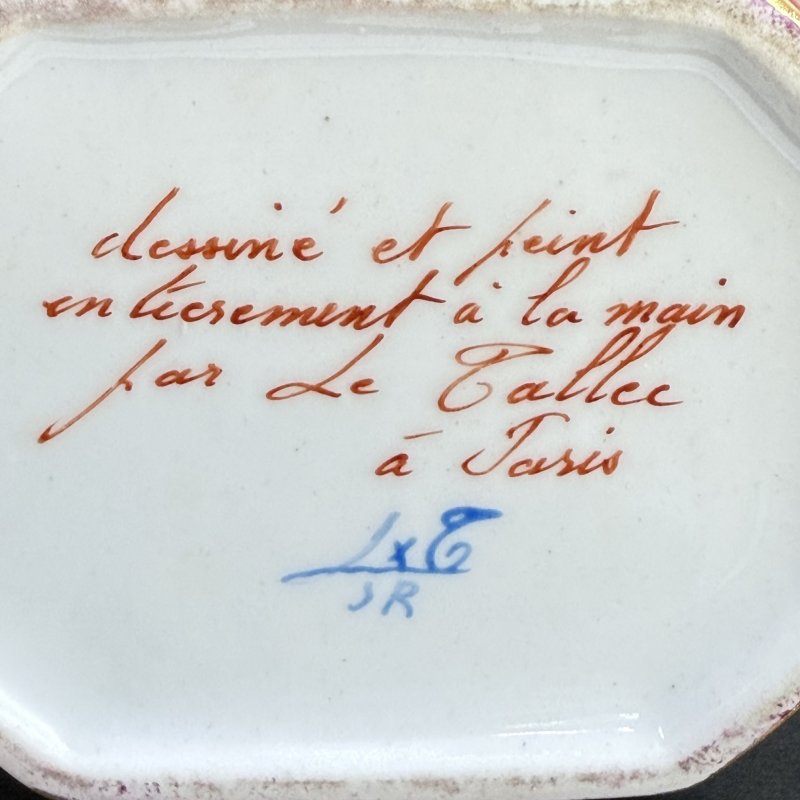 dessiné et peint
entièrement à la main
par Le Tallec
à Paris
LxT
SR